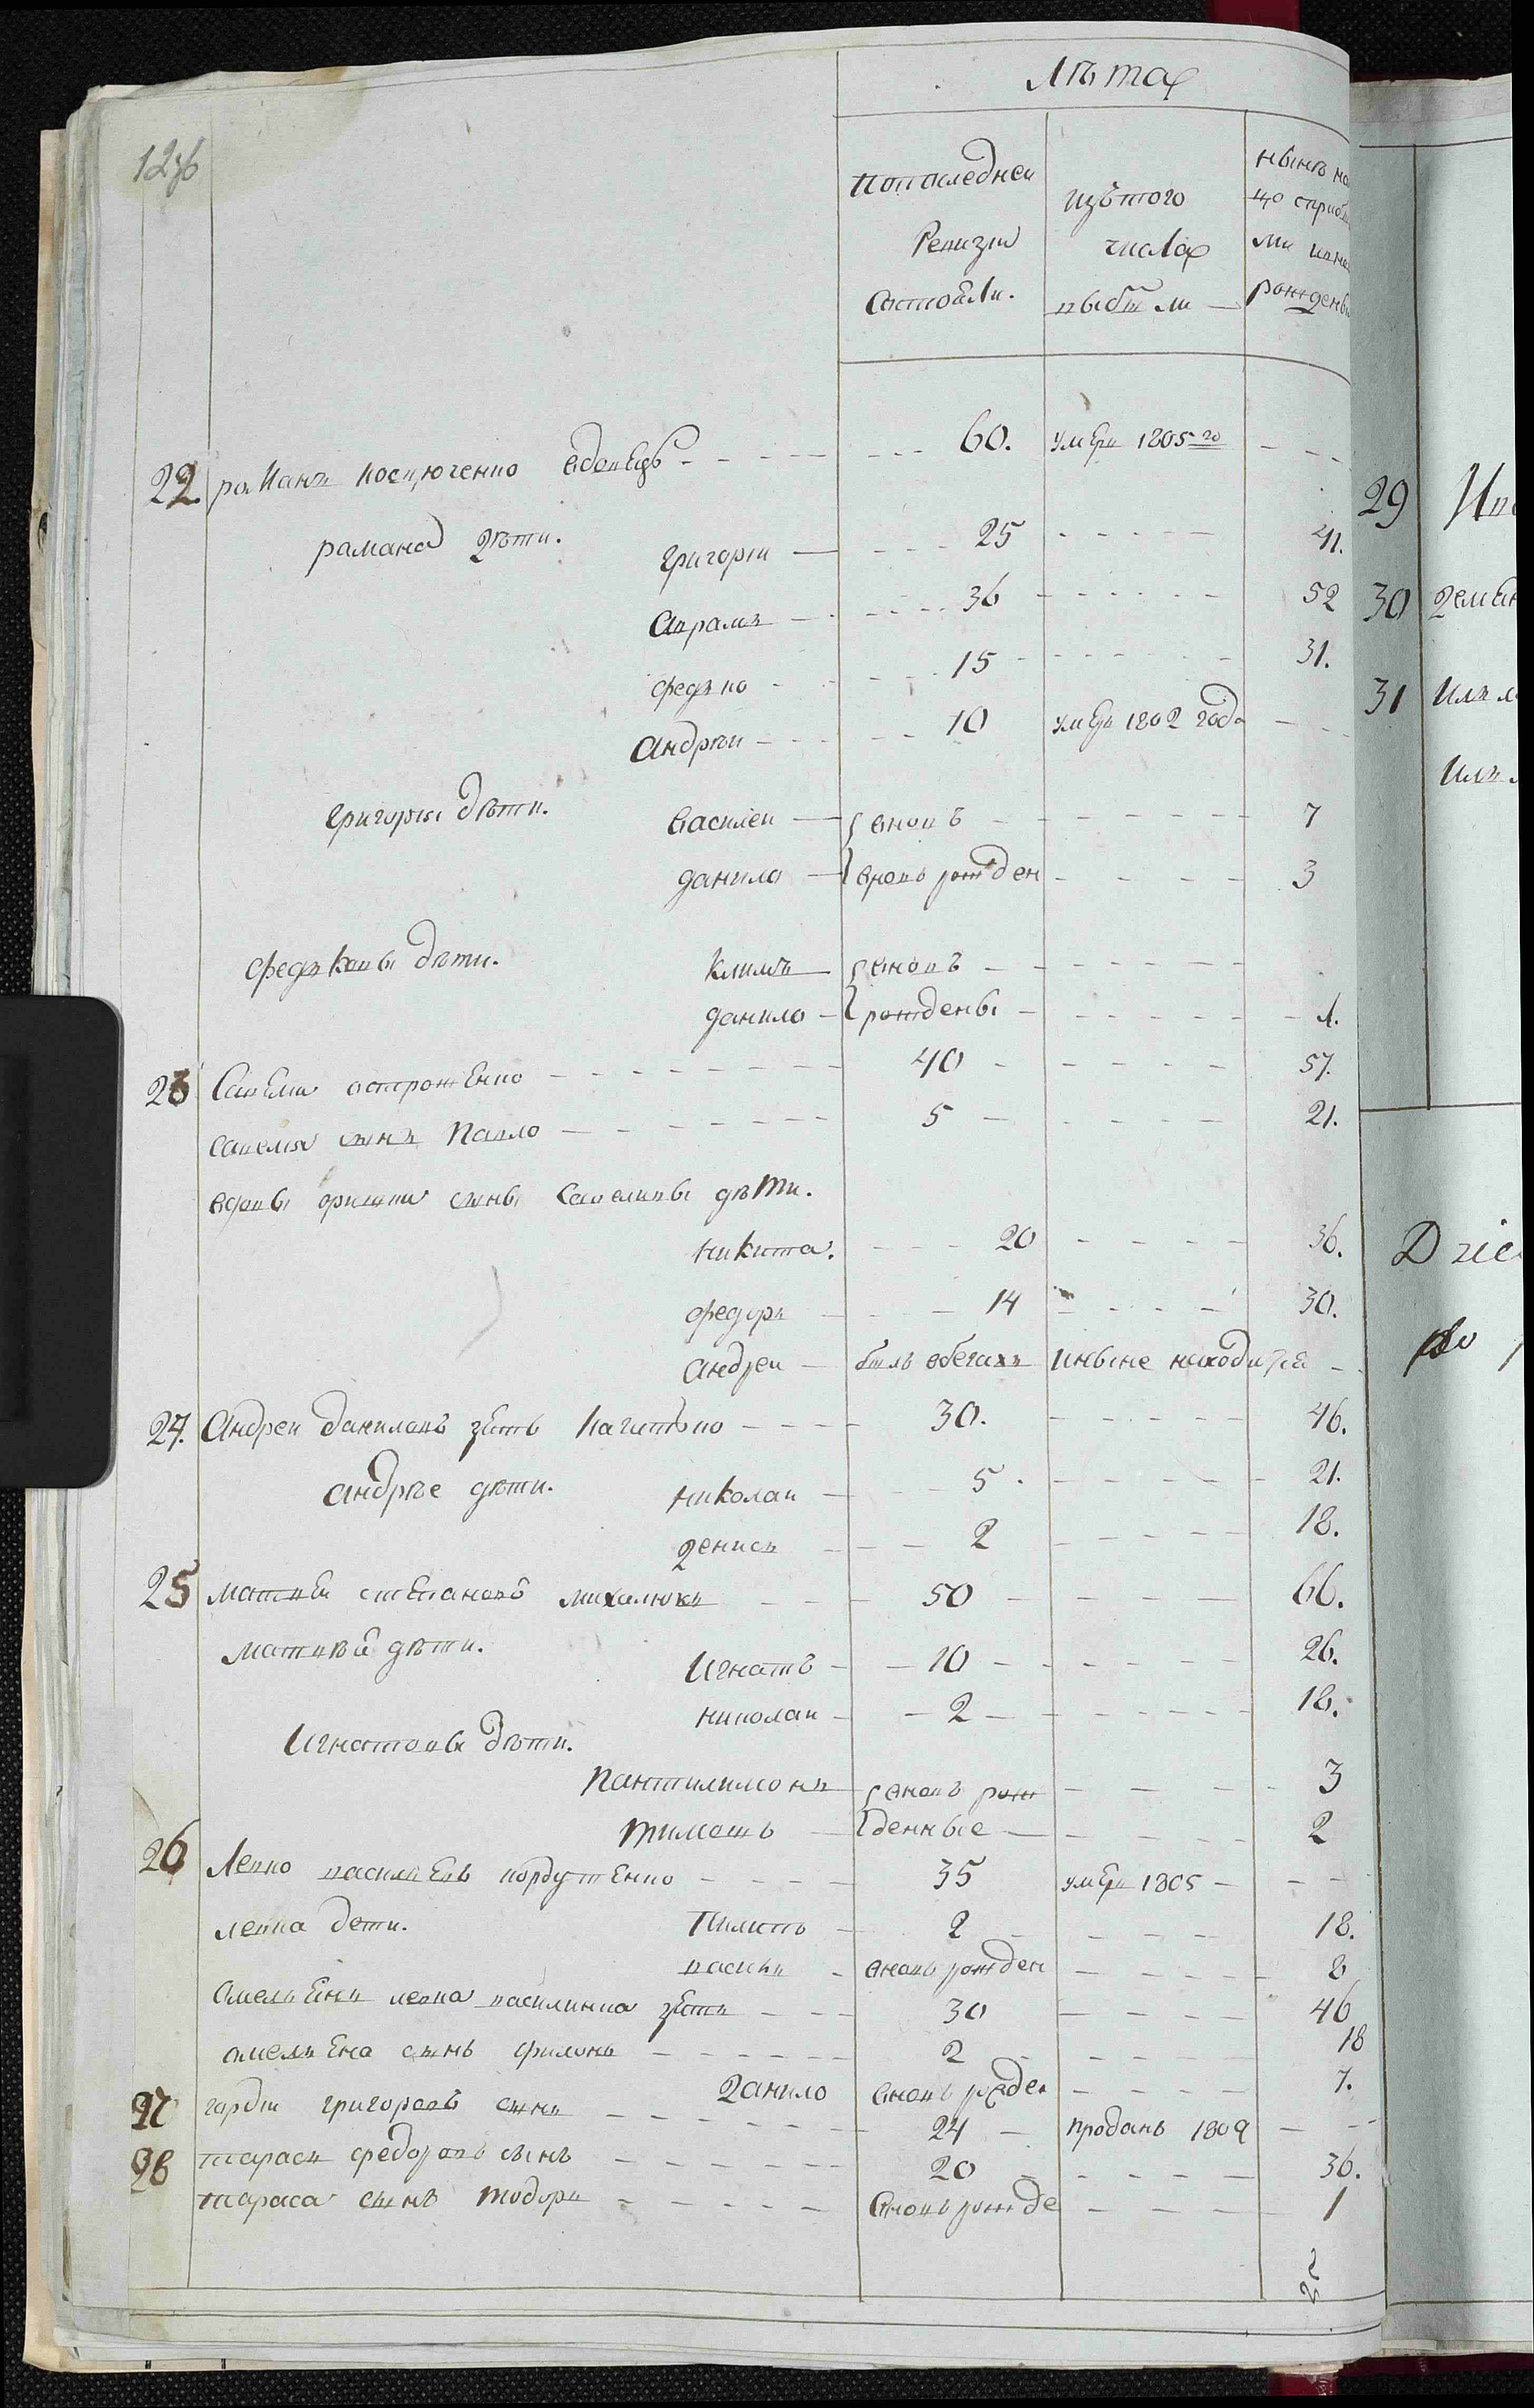 Лѣта
по последней
Ревизіи
Состояли.
изъ того
числа
выбыли
нынѣ на
рожденны
22. романъ костюченко вдовецъ 60. умеръ 1805го
романа дѣти.
григорий 25 41.
Аврамъ 36 52
федько 15 31.
Андрѣи 10 умеръ 1802 года
григорья дѣти.
василеи вновь 7
данило вновь рожден 3
федьковы дѣти.
климъ вновь
данило рождены 1.
23 Савели остроженко 40 57.
савелия сынъ Павло 5 21.
вдовы сыны савеливы дѣти.
никита. 20 36.
федоръ 14 30.
андреи былъ вбегахъ и ныне находится
24. Андреи даниловъ зять 30. 46.
андрѣе дѣти.
николаи 5. 21.
денисъ 2 18.
25 матвеи степановъ михалюкъ 50 66.
матвѣя дѣти.
игнатъ 10 26.
николаи 2 18.
Игнатовы дѣти.
пантилимонъ вновь рож 3
тимошъ денные 2
26 Левко василевъ кордуженко 35 умеръ 1805
левка дети.
Пилипъ 2 18.
васили вновь рожден 8
омельенъ левка василинка зять 30 46
омельена сынъ филонъ 2 18
данило вновь рожден 7.
27 гордей григоровъ сынъ 24 проданъ 1809
28 тарасъ федоровъ сынъ 20 36.
тараса сынъ тодоръ вновь рожде 1
29
30 демьян
31